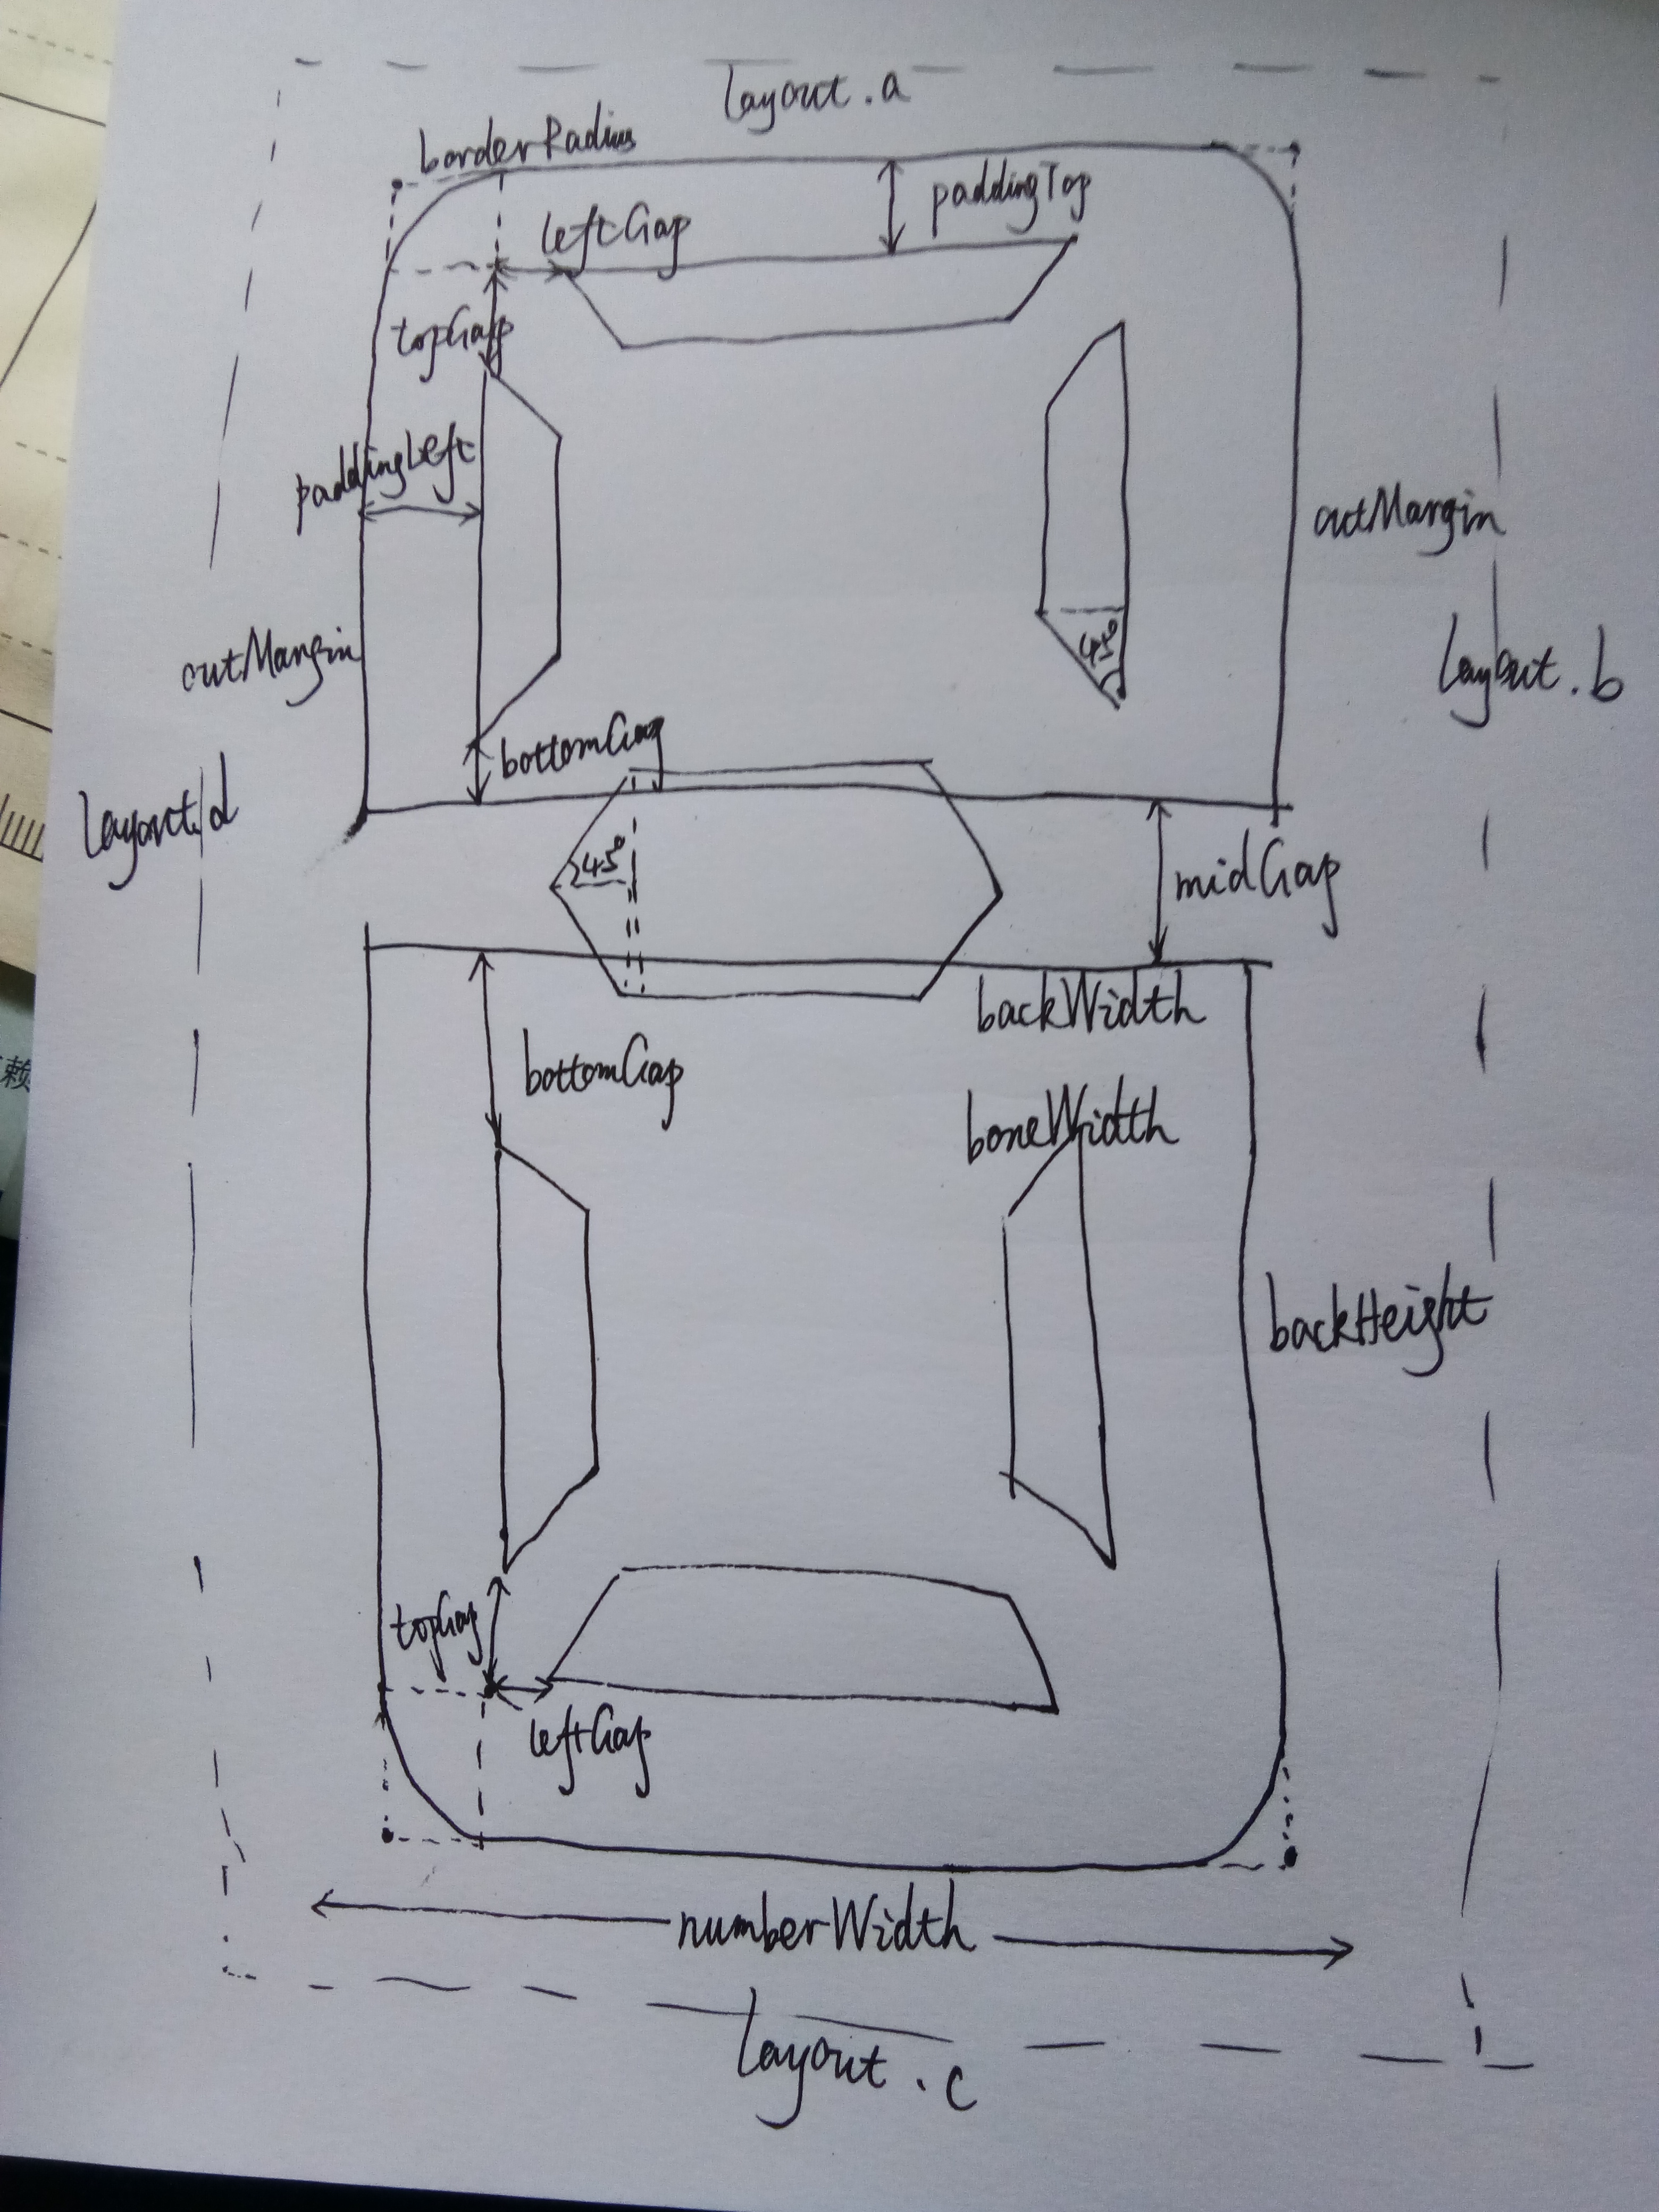 layout.a
borderRadius
paddingTop
leftGap
topGap
paddingLeft
outMargin
outMargin
45°
layout.b
bottomGap
layout.d
45°
midGap
backWidth
bottomGap
boneWidth
backHeight
topGap
leftGap
numberWidth
layout.c
赖